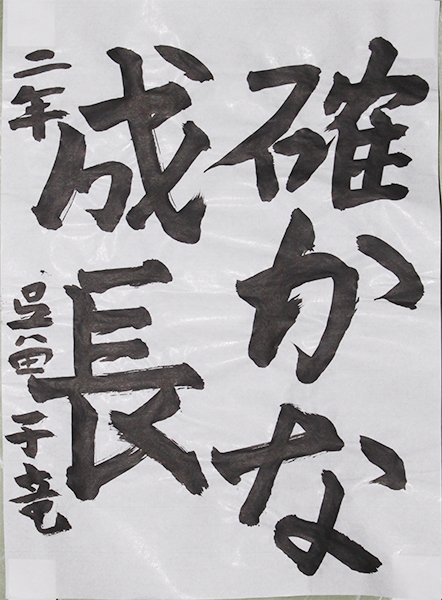 確かな
成長
二年 千竜